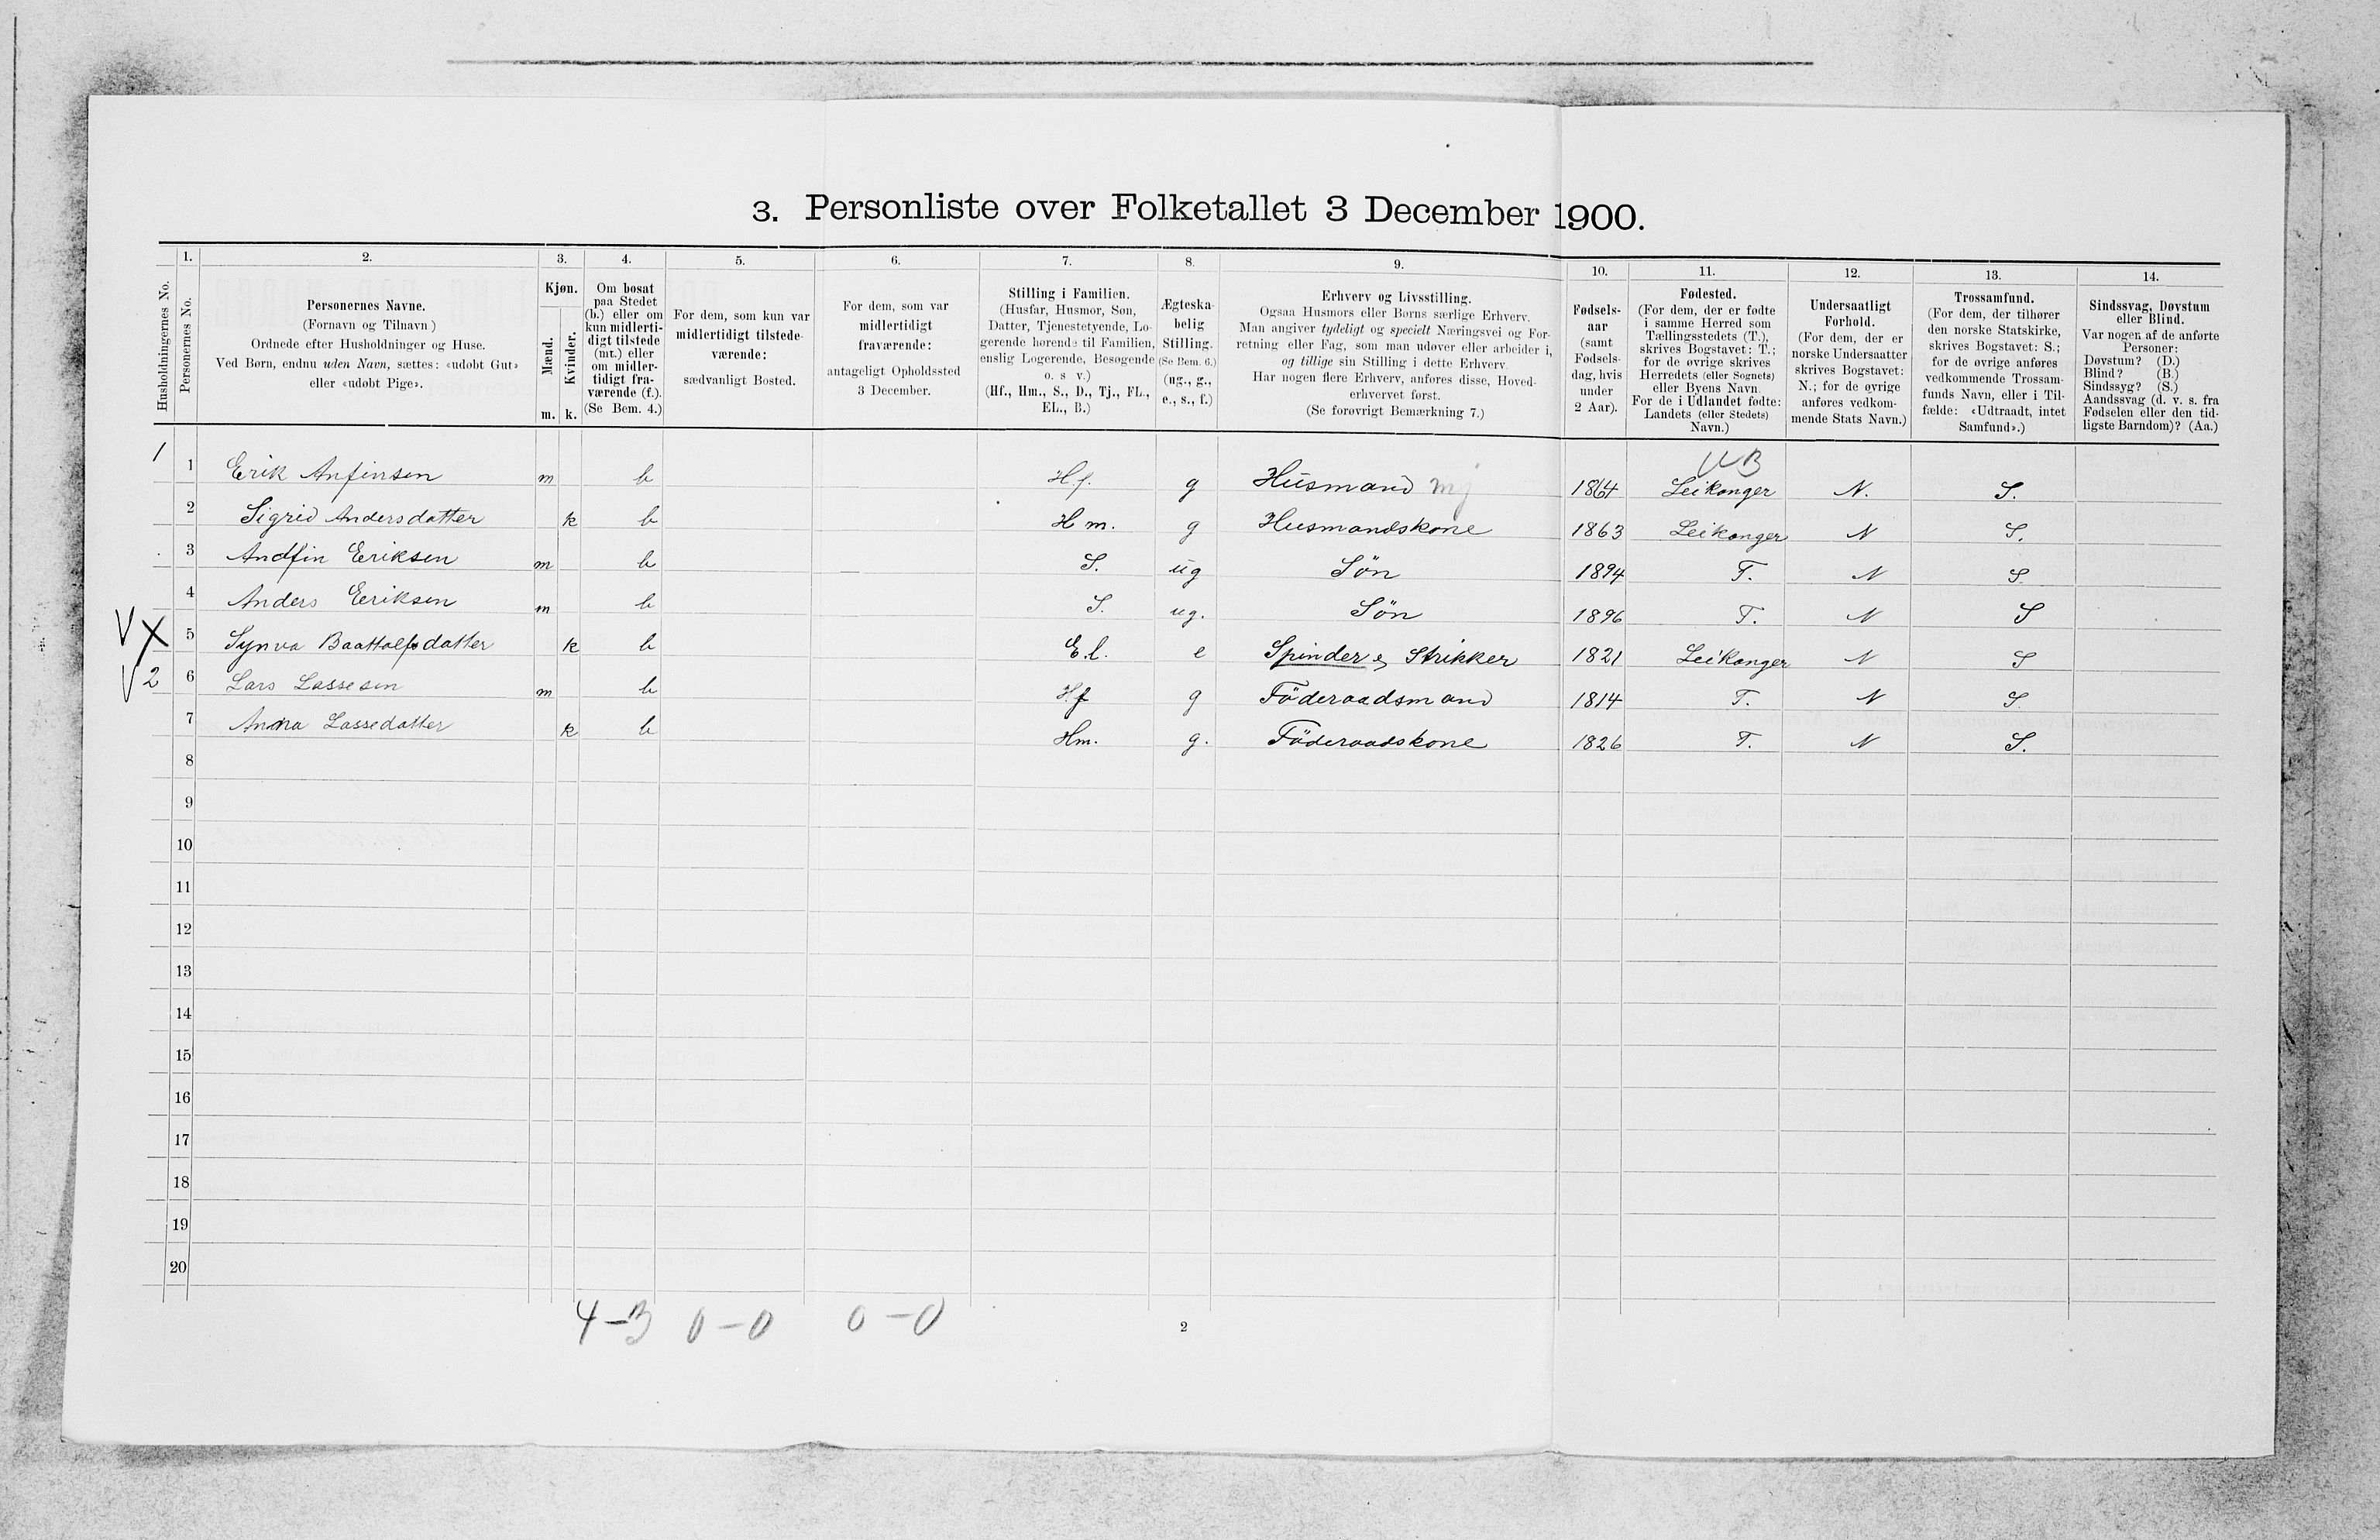 3. Personliste over Folketallet 3 December 1900.
1. 2. 3. 4. 5. 6. 7. 8. 9. 10. 11. 12. 13. 14.
Husholdningernes No.
Personernes No.
Personernes Navne.
(Fornavn og Tilnavn)
Ordnede efter Husholdninger og Huse.
Ved Børn, endnu uden Navn, sættes: «udøbt Gut»
eller «udøbt Pige».
Kjøn.
Mænd.
Kvinder.
m. k.
Om bosat
paa Stedet
(b.) eller om
kun midlerti-
digt tilstede
(mt.) eller
om midler-
tidigt fra-
værende (f.).
(Se Bem. 4.)
For dem, som kun var
midlertidigt tilstede-
værende:
sædvanligt Bosted.
For dem, som var
midlertidigt
fraværende:
antageligt Opholdssted
3 December.
Stilling i Familien.
(Husfar, Husmor, Søn,
Datter, Tjenestetyende, Lo-
gerende hørende til Familien,
enslig Logerende, Besøgende
o. s v.)
(Hf., Hm., S., D., Tj., FL.,
EL., B.)
Ægteska-
belig
Stilling.
(Se Bem. 6.)
(ug., g.,
e., s., f.)
Erhverv og Livsstilling.
Ogsaa Husmors eller Børns særlige Erhverv.
Man angiver tydeligt og specielt Næringsvei og For-
retning eller Fag, som man udøver eller arbeider i,
og tillige sin Stilling i dette Erhverv.
Har nogen flere Erhverv, anføres disse, Hoved-
erhvervet først.
(Se forøvrigt Bemærkning 7.)
Fødsels-
aar
(samt
Fødsels-
dag, hvis
under
2 Aar).
Fødested.
(For dem, der er fødte
i samme Herred som
Tællingsstedets (T.),
skrives Bogstavet: T.;
for de øvrige skrives
Herredets (eller Sognets)
eller Byens Navn.
For de i Udlandet fødte:
Landets (eller Stedets)
Navn.)
Undersaatligt
Forhold.
(For dem, der er
norske Undersaatter
skrives Bogstavet:
N.; for de øvrige
anføres vedkom-
mende Stats Navn.)
Trossamfund.
(For dem, der tilhører
den norske Statskirke,
skrives Bogstavet: S.;
for de øvrige anføres
vedkommende Trossam-
funds Navn, eller i Til-
fælde: «Udtraadt, intet
Samfund».)
Sindssvag, Døvstum
eller Blind.
Var nogen af de anførte
Personer:
Døvstum? (D.)
Blind? (B.)
Sindssyg? (S.)
Aandssvag (d. v. s. fra
Fødselen eller den tid-
ligste Barndom)? (Aa.)
1 1 Erik Anfinsen m b Hf. g Husmand mj 1864 Leikanger N. S.
2 Sigrid Andersdatter k b Hm. g Husmandskone 1863 Leikanger N S.
3 Andfin Eriksen m b S. ug Søn 1894 T. N S
4 Anders Eriksen m b S. ug. Søn 1896 T. N S
V X 5 Synva Baattolfsdatter k b E.l. e Spinder & Strikker 1821 Leikanger N S
V 2 6 Lars Lassesen m b Hf g Föderaadsmand 1814 T. N S
7 Anna Lassedatter k b Hm. g. Föderaadskone 1826 T. N S.
8
9
10
11
12
13
14
15
16
17
18
19
20
4-3 0-0 0-0
2